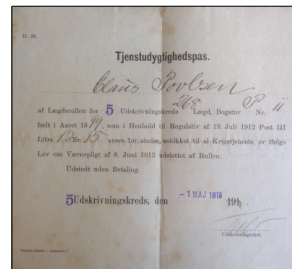 Tjenstudygtighedspas.
Claus Povlsen
af Lægdsrullen for 5 Udskrivningskreds 268 Lægd, Bogstav P Nr. 11
født i Aaret 1849, som i Henhold til Regulativ af 19. Juli 1912 Post III
Litra Nr. 15 anses for uskikket til al Krigstjeneste, er ifølge
Lov om Værnepligt af 8. Juni 1912 udslettet af Rullen.
Udstedt uden Betaling.
5 Udskrivningskreds, den -1 MAJ 1918 19
Udskrivningschef